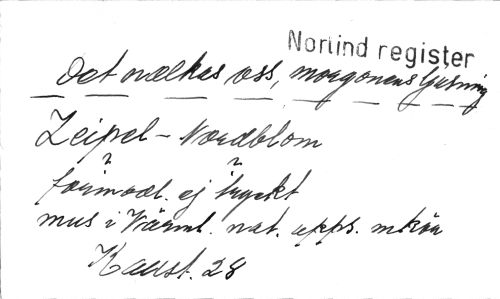 Norlind register
Det nalkas oss, morgonens ljusning
Zeipel - Nordblom
? ?
förmodl. ej tryckt
mus i Wärml. nat. upps. mkör
Kaust. 28